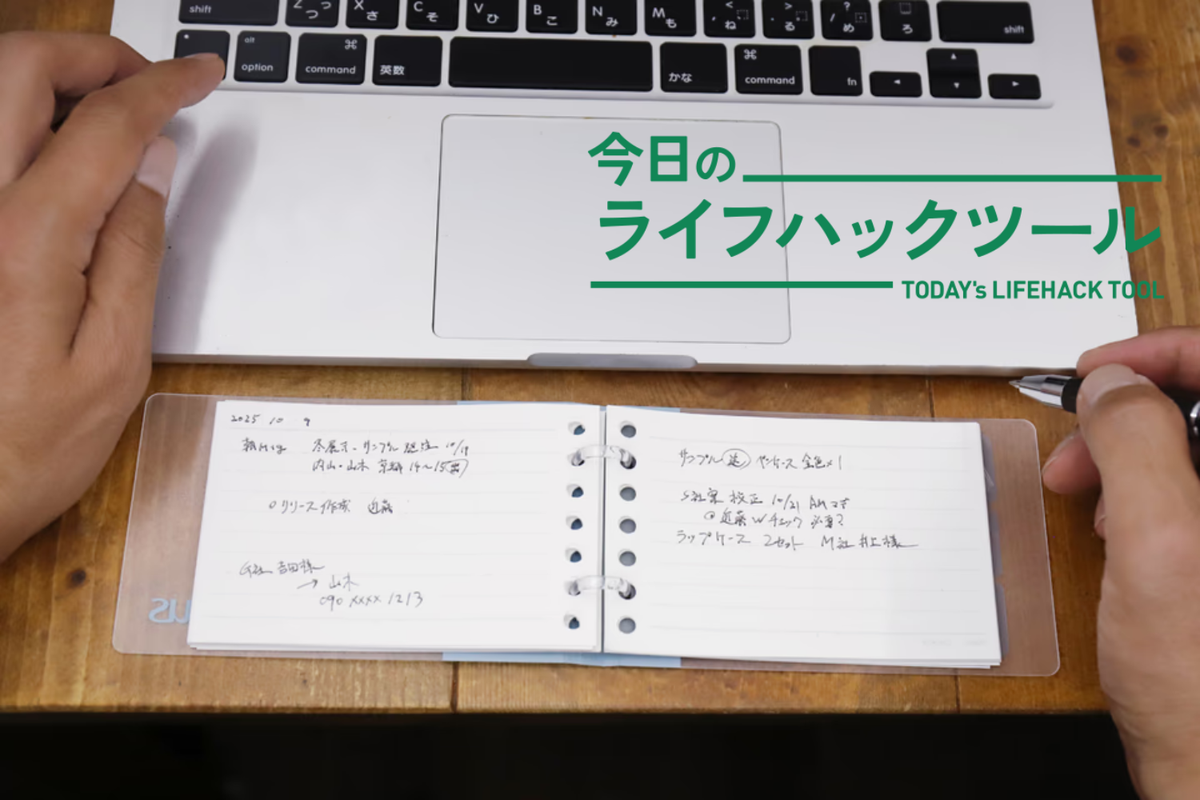 shift Z つっ X さ C そ V ひ B こ N み M も < , ね > . る ? / め ろ shift
alt option ⌘ command 英数 かな ⌘ command fn
今日の
ライフハックツール
TODAY's LIFEHACK TOOL
2025 10 9
朝Mtg 冬展示 サンプル 10/19
内山・山本 京都 14〜15
リリース作成 近藤
G社 吉田様
→ 山本
090 xxxx 1213
サンプル 送 ペンケース 金色×1
S社案 校正 10/21 AMまず
近藤 Wチェック 必要?
ラップケース 2セット M社 井上様